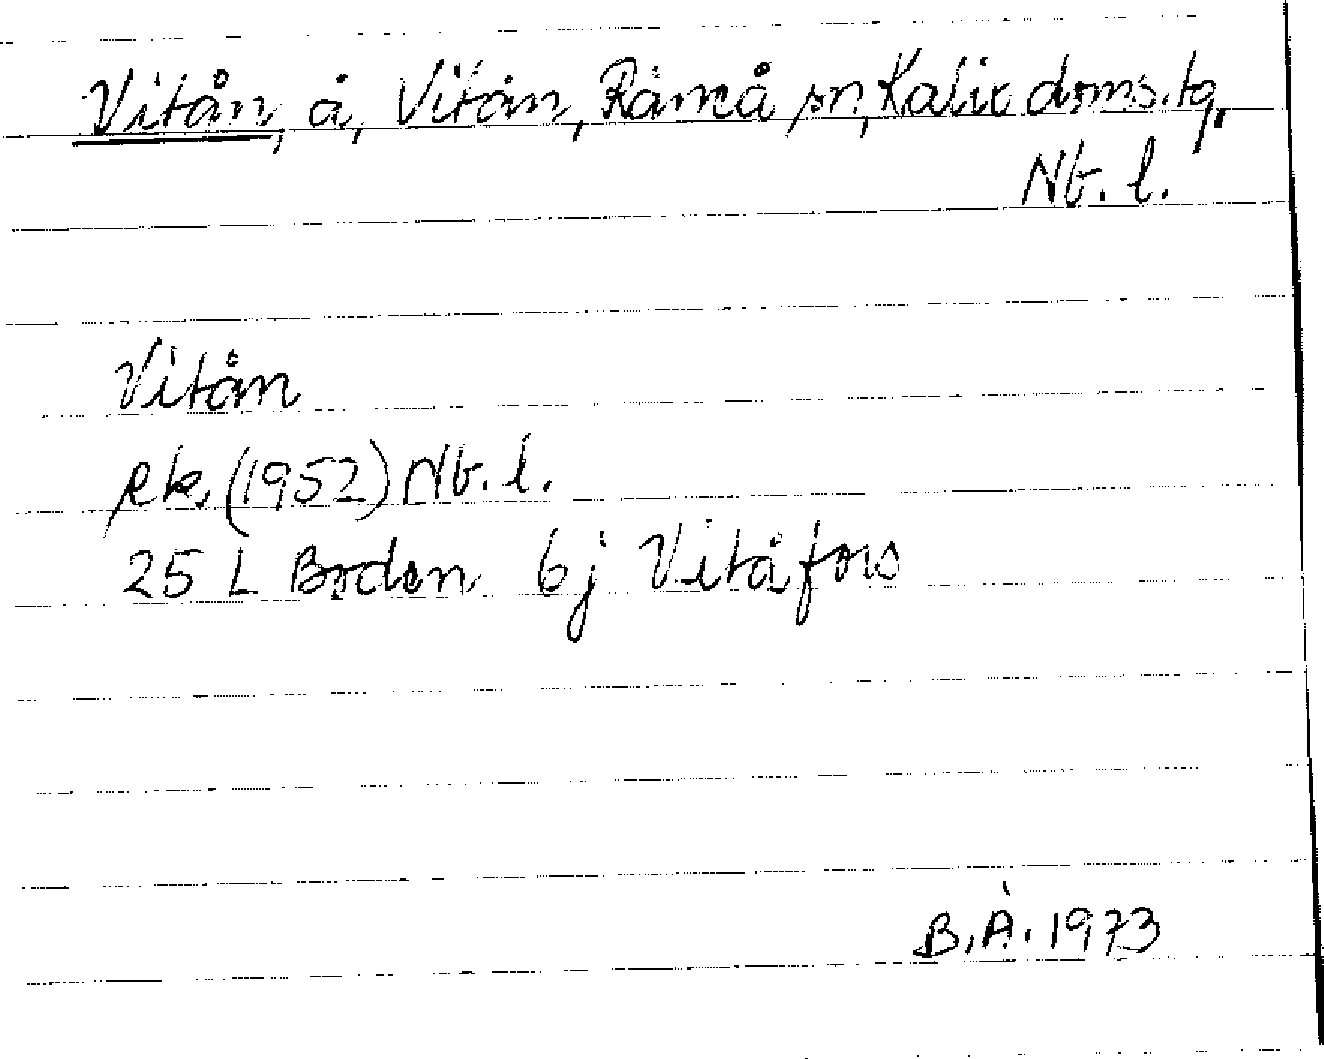 Vitån, å, Vitån, Råneå sn, Kalix doms.tg,
Nb. l.
Vitån
ek. (1952) Nb. l.
25 L Boden 6j Vitåfors
B.Å. 1973